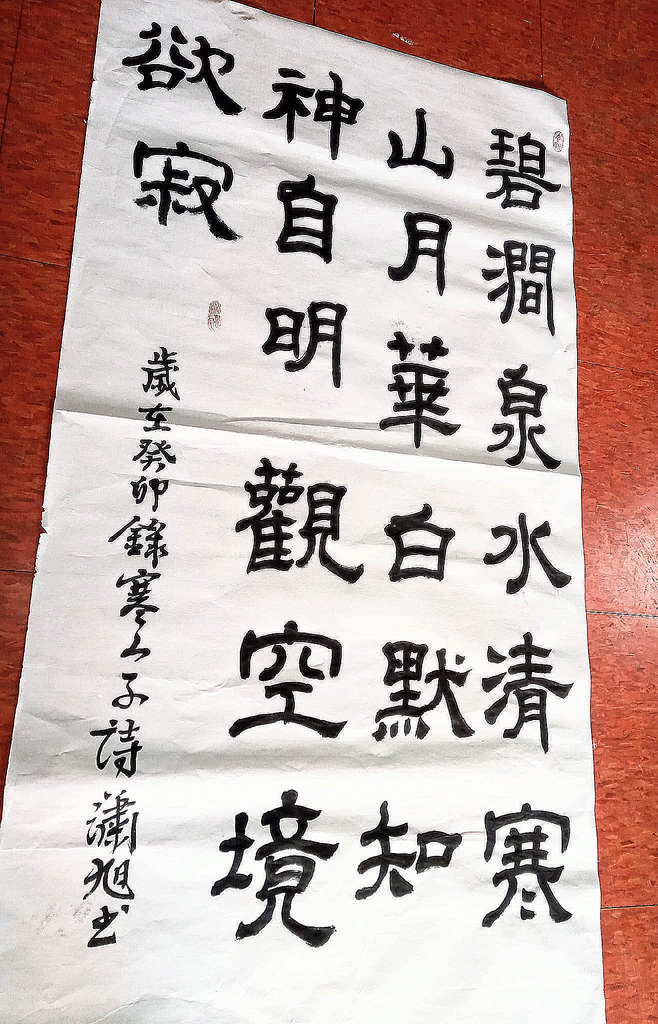 碧澗泉水清寒
山月華白默知
神自明觀空境
欲寂
歲在癸卯錄寒山子詩瀟旭书